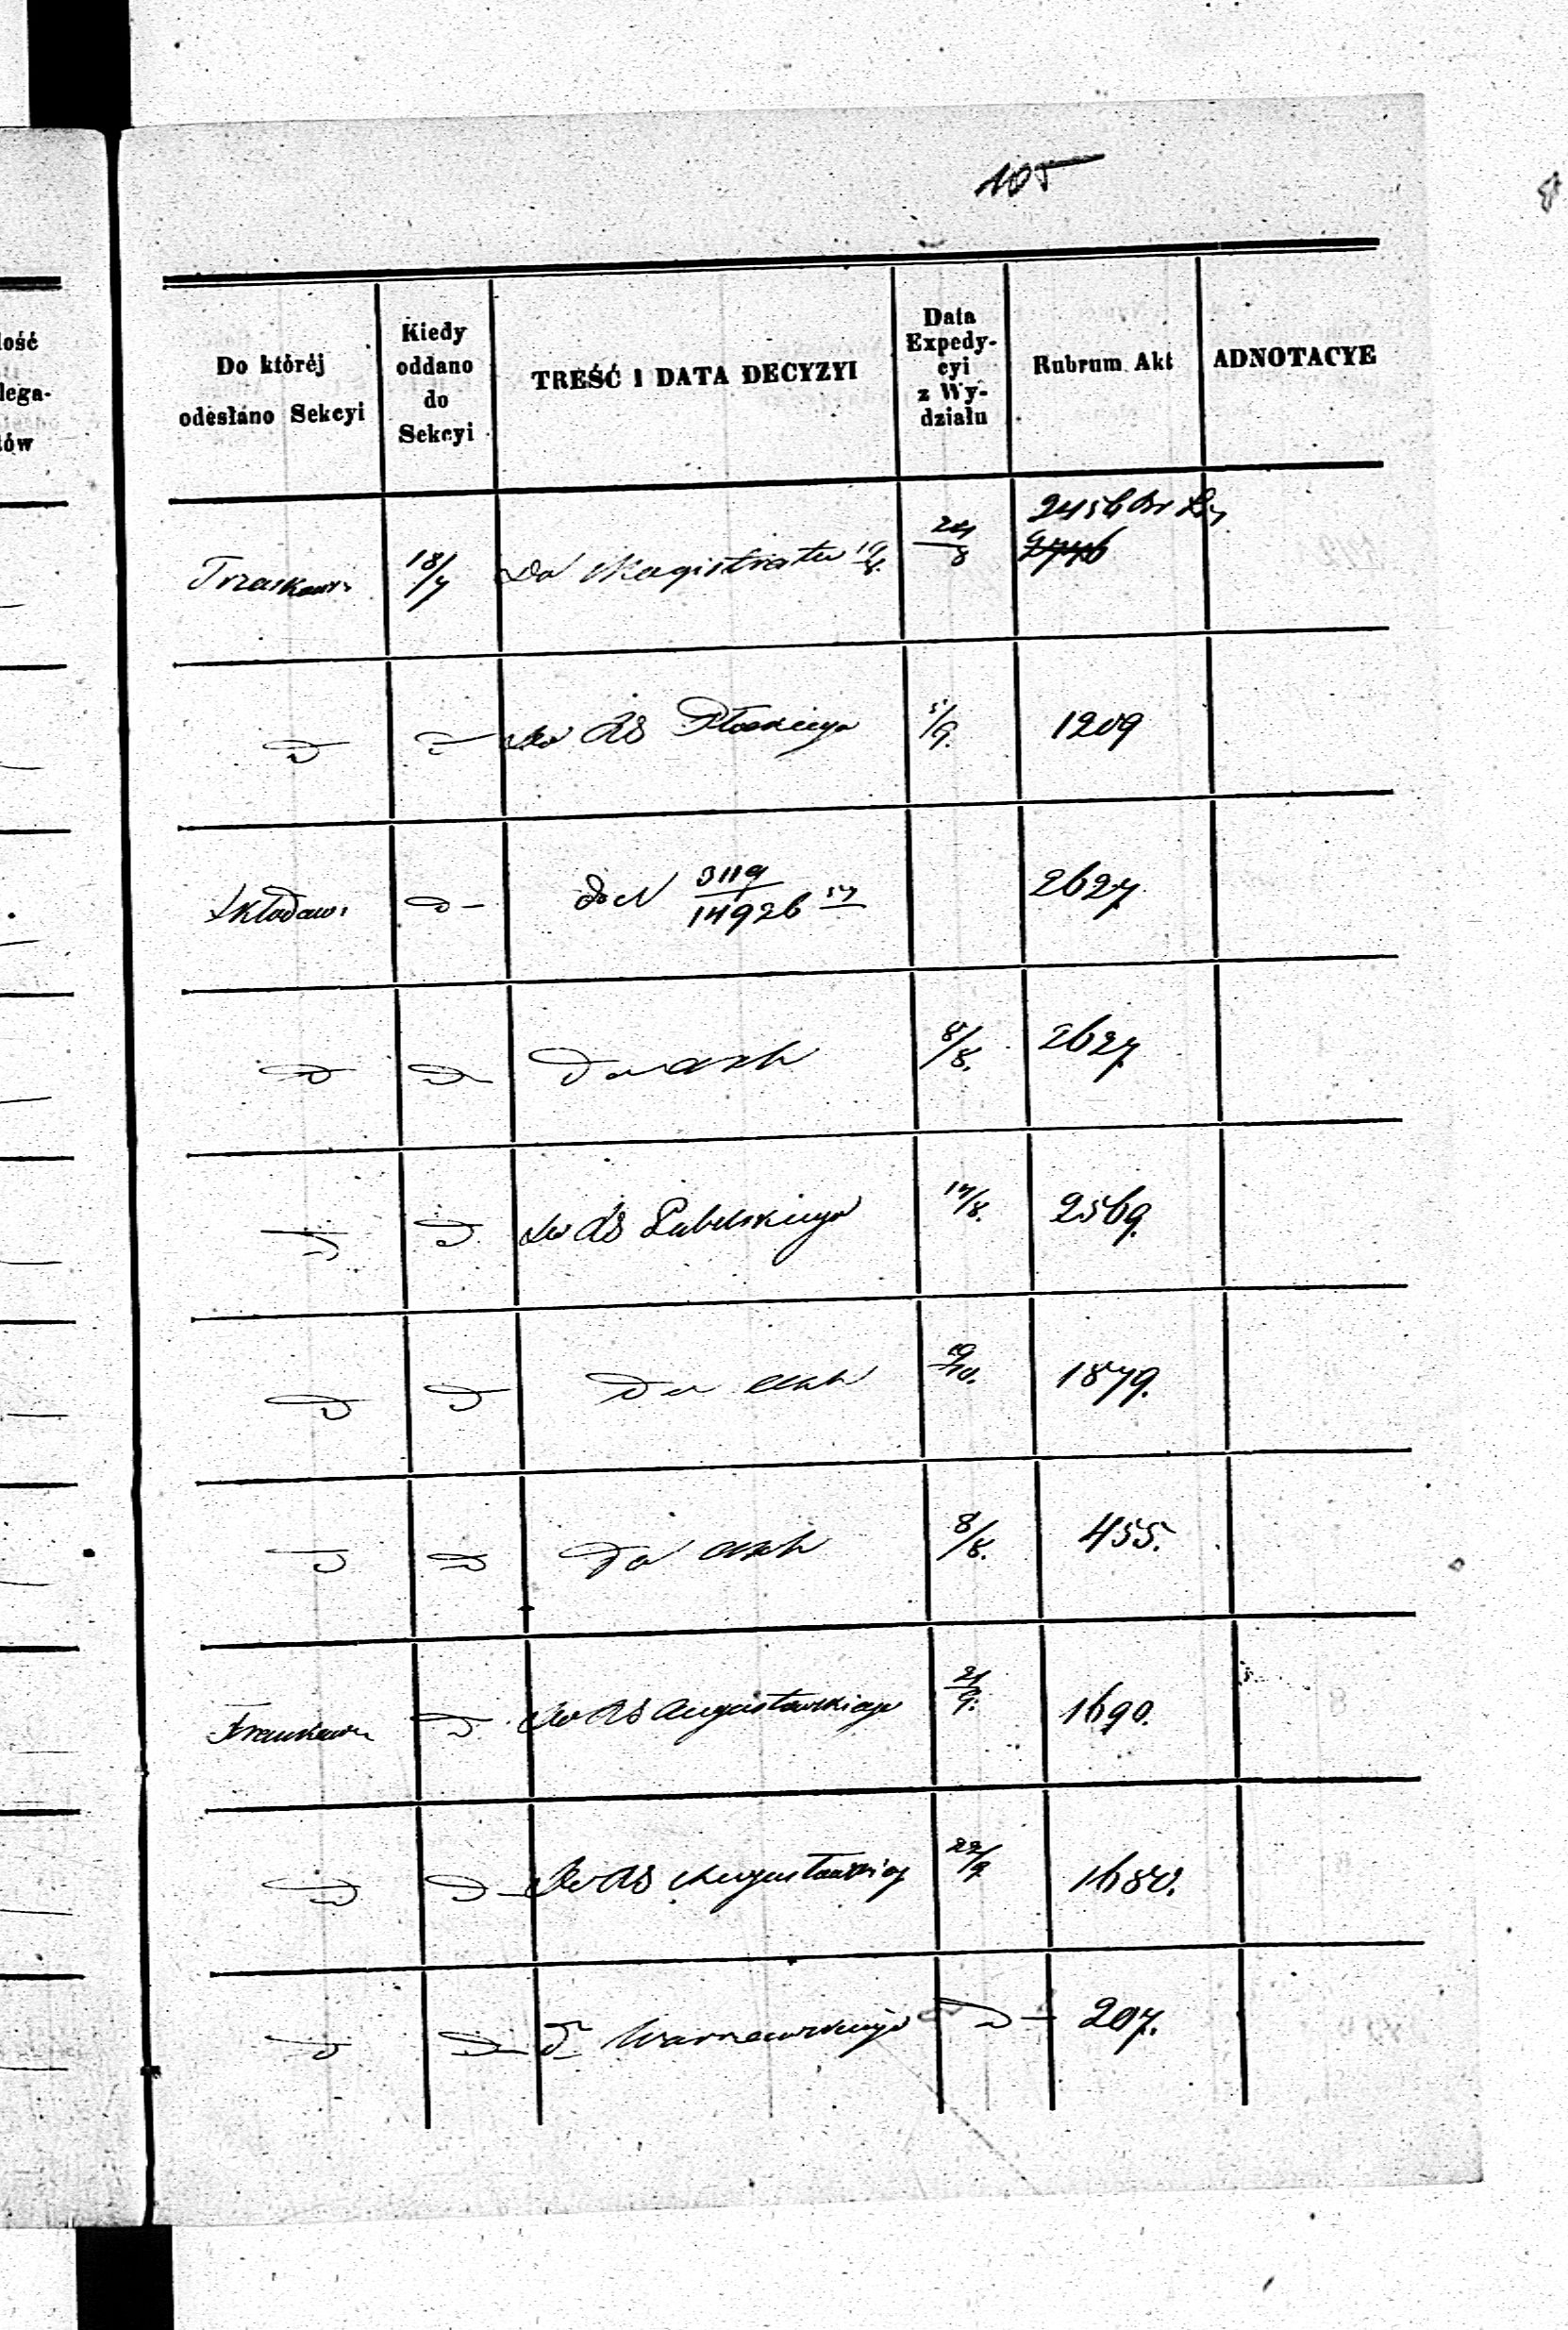 105
lość
lega-
tów
Do któréj
odesłano Sekcyi
Kiedy
oddano
do
Sekcyi
TREŚĆ I DATA DECYZYI
Data
Expedy-
cyi
z Wy-
działu
Rubrum Akt
ADNOTACYE
18/7 Do Magistratu 24/8 2456
D D Do RS Płockiego 5/9. 1209
D- do N 3119/14926 2627.
D D Do akt 8/8. 2627
D D Do RS Lubelskiego 17/8. 2569.
D D Do akt 1879.
D D Do akt 8/8. 455.
D Do RS Augustowskiego 21/9. 1690.
D D Do RS Augustowskieg 22/9 1680.
D D D Warszawskiego D 207.